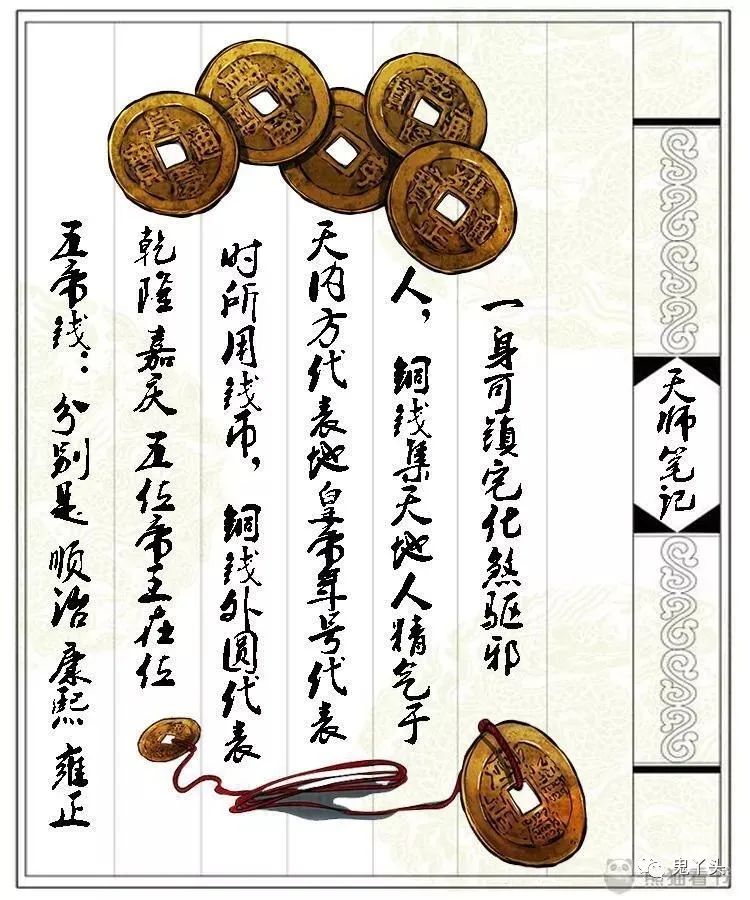 五帝钱：分别是 顺治 康熙 雍正
乾隆嘉庆 五位帝王在位
时所用钱币，铜钱外圆代表
天内方代表地皇帝年号代表
人，铜钱集天地人精气于
一身可镇宅化煞驱邪
天师笔记
鬼丫头
熊猫看书